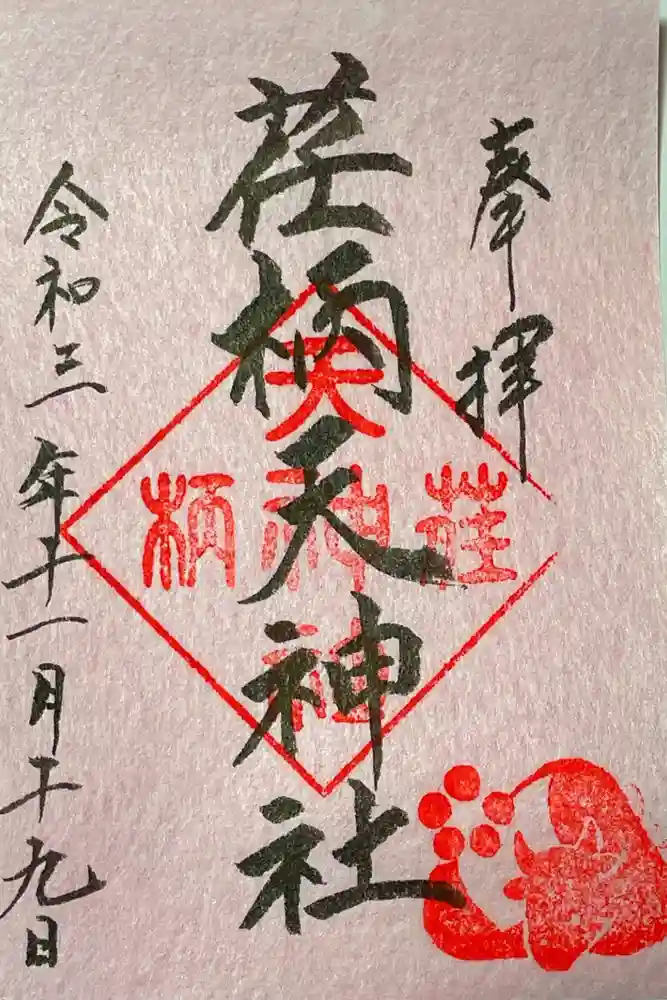 奉拝
荏柄天神社
荏
天神社
柄
令和三年十一月十九日